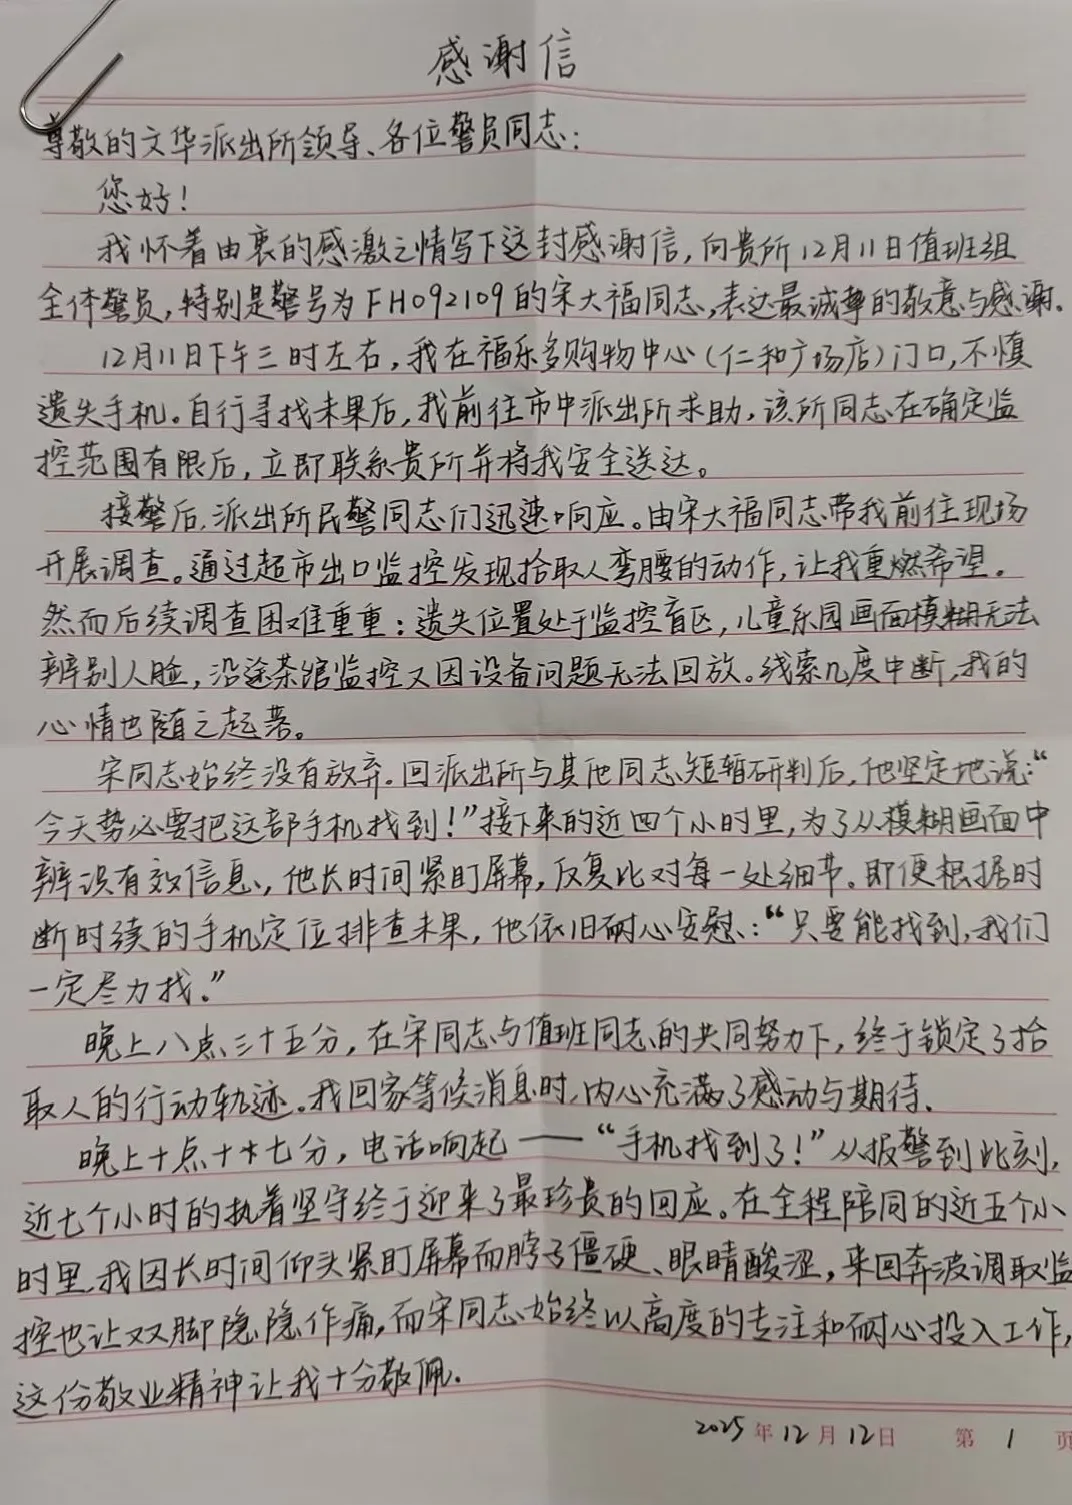 感谢信
尊敬的文华派出所领导、各位警员同志：
您好！
我怀着由衷的感激之情写下这封感谢信，向贵所12月11日值班组
全体警员，特别是警号为FH092109的宋大福同志，表达最诚挚的敬意与感谢。
12月11日下午三时左右，我在福乐多购物中心（仁和广场店）门口，不慎
遗失手机。自行寻找未果后，我前往市中派出所求助，该所同志在确定监
控范围有限后，立即联系贵所并将我安全送达。
接警后，派出所民警同志们迅速响应。由宋大福同志带我前往现场
开展调查。通过超市出口监控发现拾取人弯腰的动作，让我重燃希望。
然而后续调查困难重重：遗失位置处于监控盲区，儿童乐园画面模糊无法
辨别人脸，沿途茶馆监控又因设备问题无法回放。线索几度中断，我的
心情也随之起落。
宋同志始终没有放弃。回派出所与其他同志短暂研判后，他坚定地说：“
今天势必要把这部手机找到！”接下来的近四个小时里，为了从模糊画面中
辨识有效信息，他长时间紧盯屏幕，反复比对每一处细节。即便根据时
断时续的手机定位排查未果，他依旧耐心安慰：“只要能找到，我们
一定尽力找。”
晚上八点三十五分，在宋同志与值班同志的共同努力下，终于锁定了拾
取人的行动轨迹。我回家等候消息时，内心充满了感动与期待。
晚上十点十七分，电话响起——“手机找到了！”从报警到此刻，
近七个小时的执着坚守终于迎来了最珍贵的回应。在全程陪同的近五个小
时里，我因长时间仰头紧盯屏幕而脖子僵硬、眼睛酸涩，来回奔波调取监
控也让双脚隐隐作痛，而宋同志始终以高度的专注和耐心投入工作，
这份敬业精神让我十分敬佩。
2025年12月12日 第1页